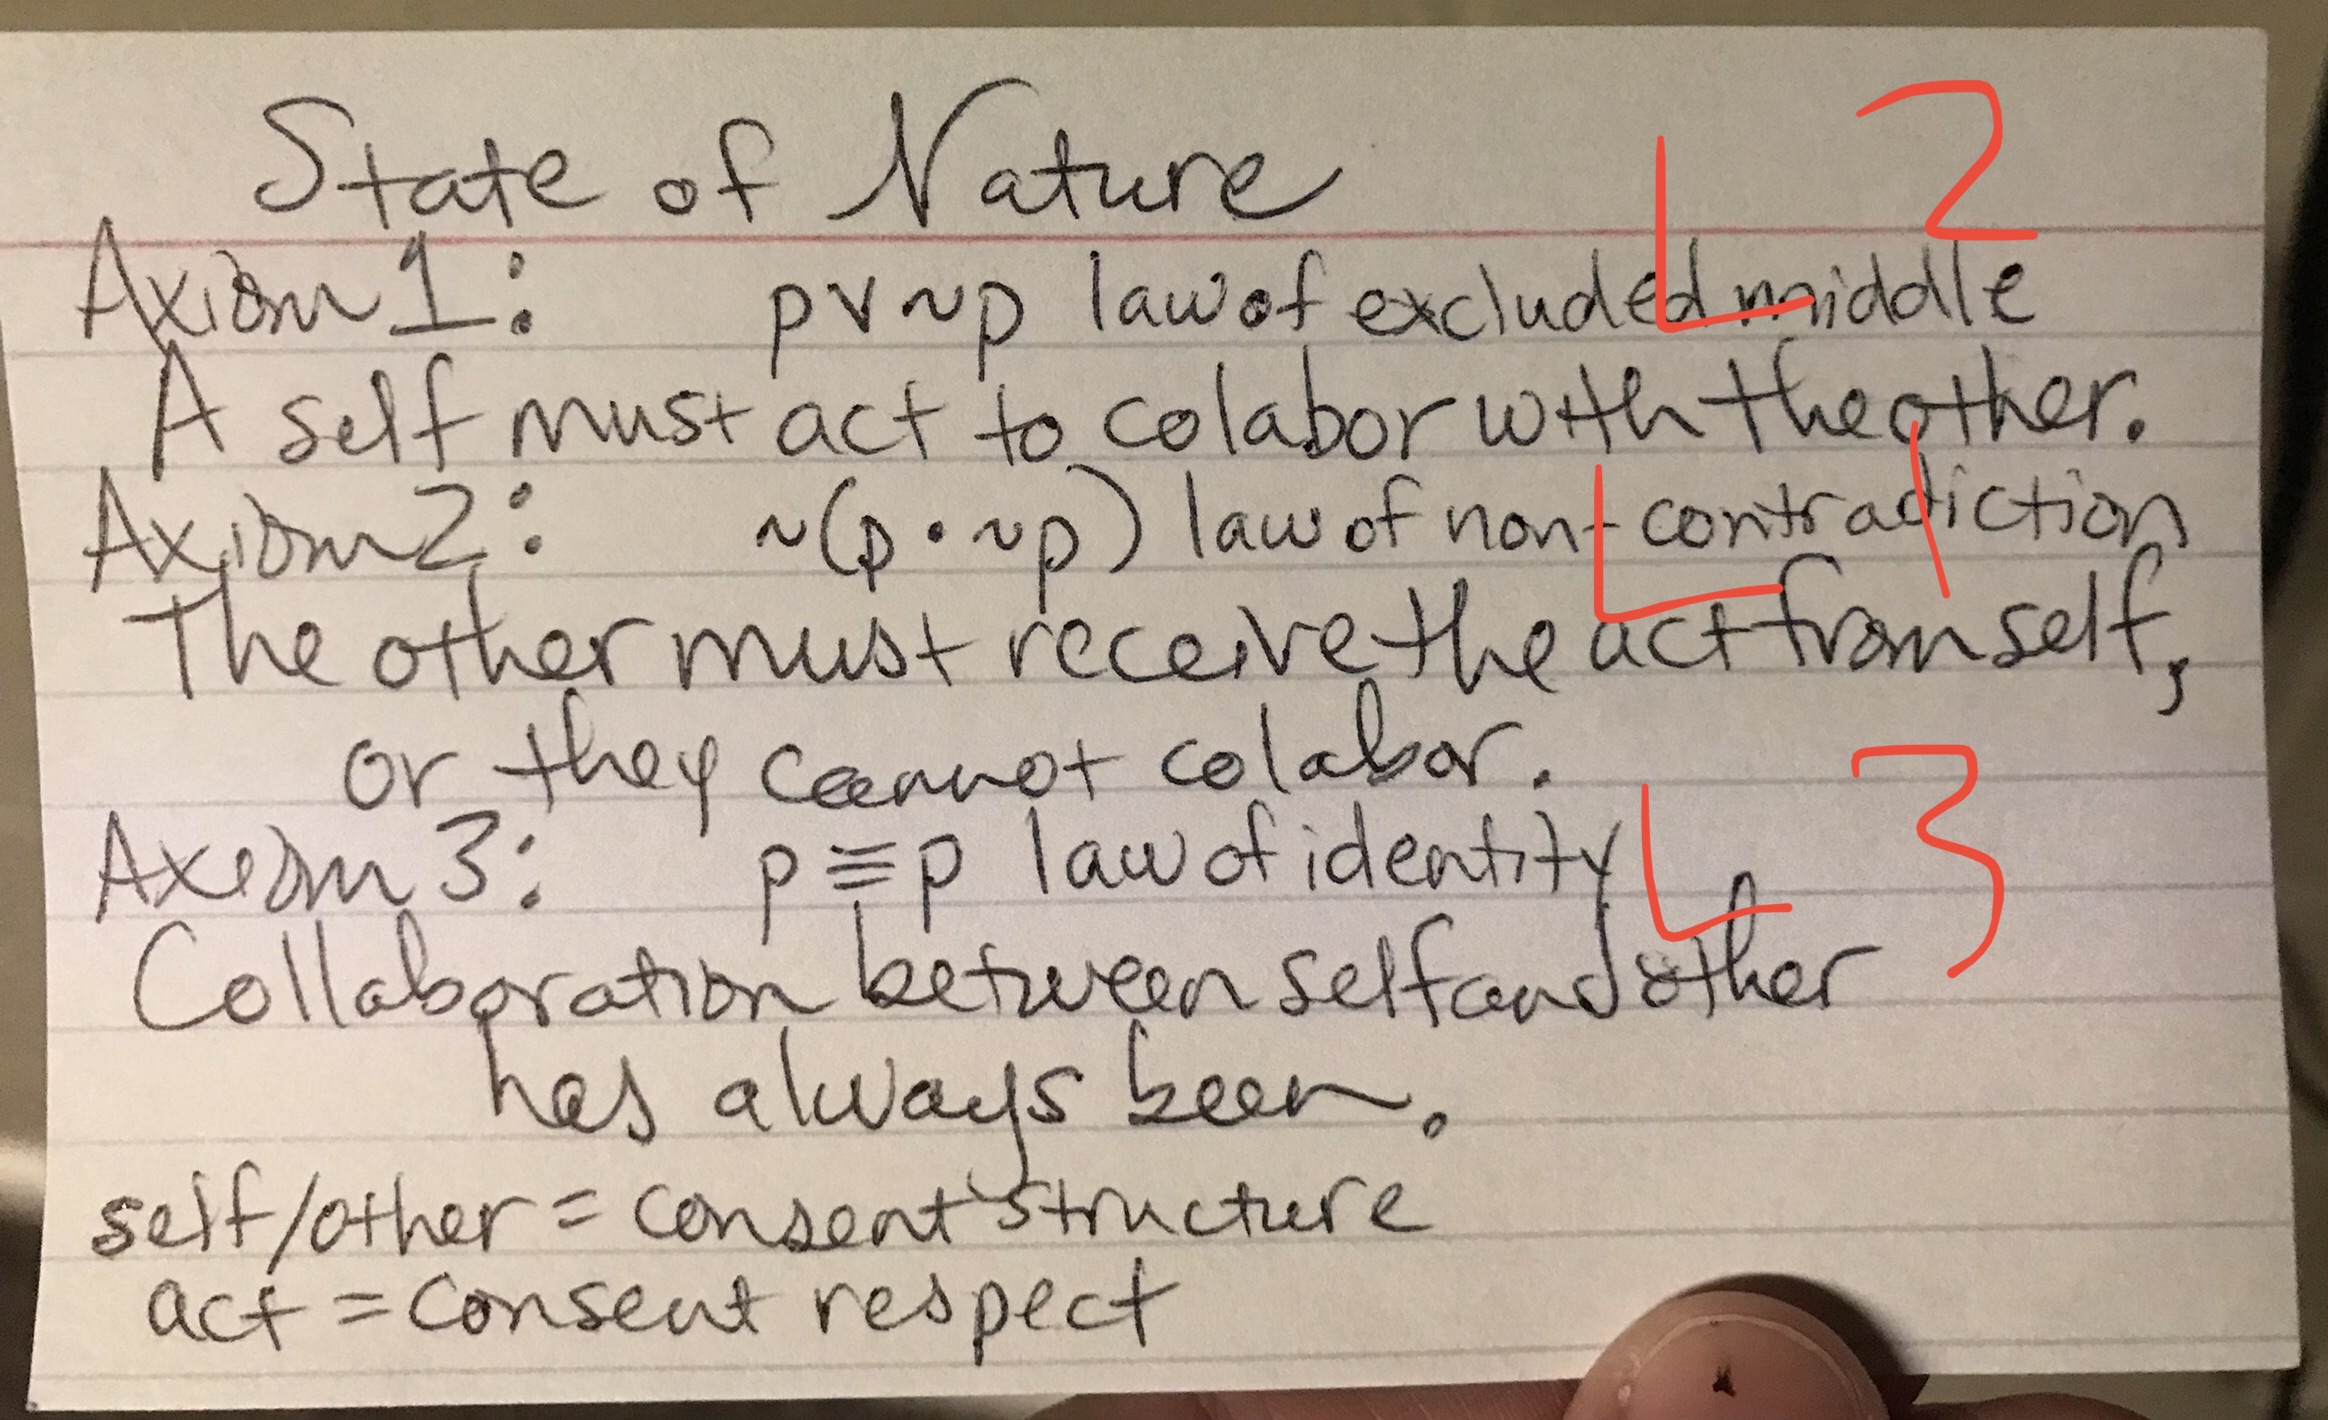 State of Nature L2
Axiom 1: p v ~p law of excluded middle
A self must act to colabor with the other.
Axiom 2: ~(p • ~p) law of non-contradiction L1
The other must receive the act from self,
or they cannot colabor.
Axiom 3: p ≡ p law of identity L3
Collaboration between self and other
has always been.
self/other = consent structure
act = consent respect